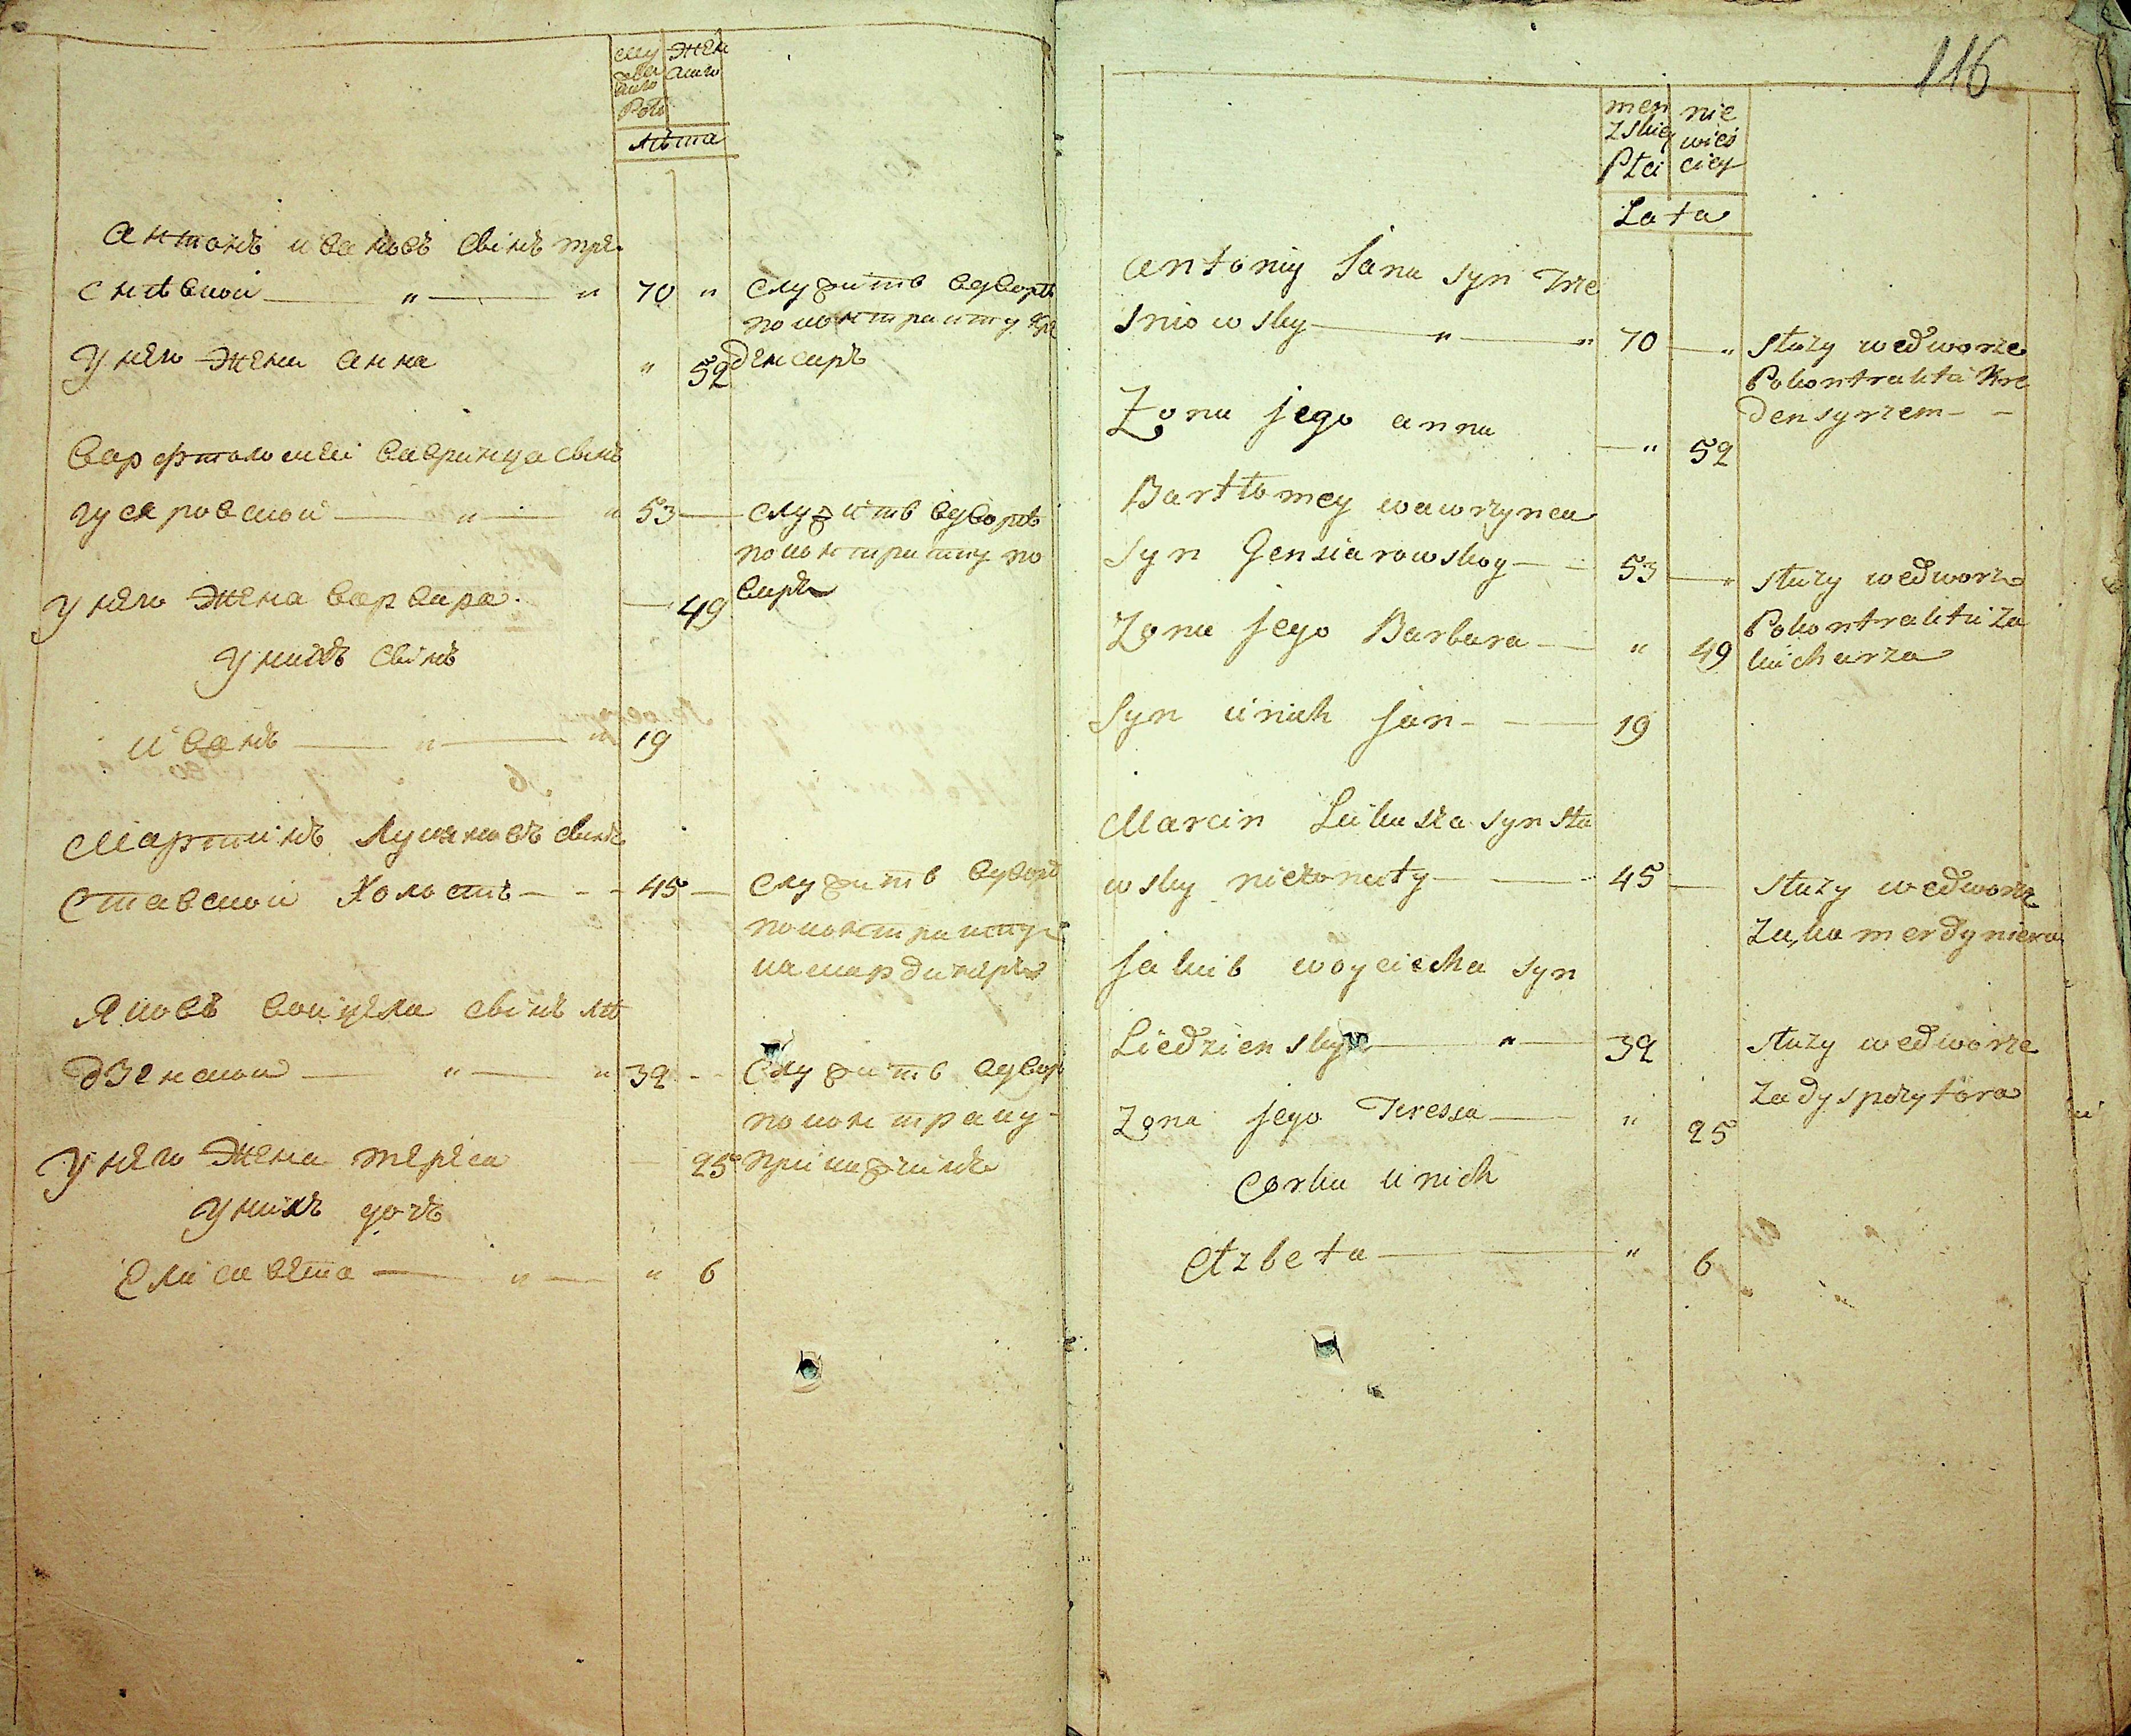 Му жен
жес скаго
каго
Полъ
лѣта
Антонъ Ивановъ сынъ Трже
снѣвской — " — " 70 " служитъ вдворѣ
поконтракту кре
У него жена Анна " 52 денсаръ
Варфтоломей Вавринца сынъ
Гусяровской — " — " 53 — служитъ вдворѣ
поконтракту по
варъ
У него жена Варвара — 49
Унихъ сынъ
Иванъ — " — " 19
Мартинъ Лукяновъ сынъ
Ставской холостъ - - - 45 — служитъ вдворѣ
поконтракту
камардинеръ
Яковъ Войцеха сынъ Лѣ
дзенской — " — " 32 - - служитъ вдворѣ
поконтраку
У него жена Тереса — 25 прикажчикъ
Унихъ дочъ
Елисавета — " — " 6
116
męn nie
zskiey wieś
Płci ciey
Lata
Antoniy Jana syn Trze
sniowsky — " — " 70 — " słuzy wedworze
Pokontraktu Kre
densyrzem - -
Zona jego anna — " 52
Barttomey wawrzynca
syn Gensiarowskoy — - 53 — " słuzy wedworze
Pokontraktu Za
kucharza
Zona jego Barbara — - " 49
Syn unich Jan - — 19
Marcin Lukasza syn Sta
wsky niezonaty — 45 — słuzy wedworze
Zakamerdyniera
Jakub woyciecha syn
Liedziensky — " — 32 słuzy wedworze
Zadyspozytora
Zona jego Teresa — " 25
Corka unich
Elzbeta — " 6